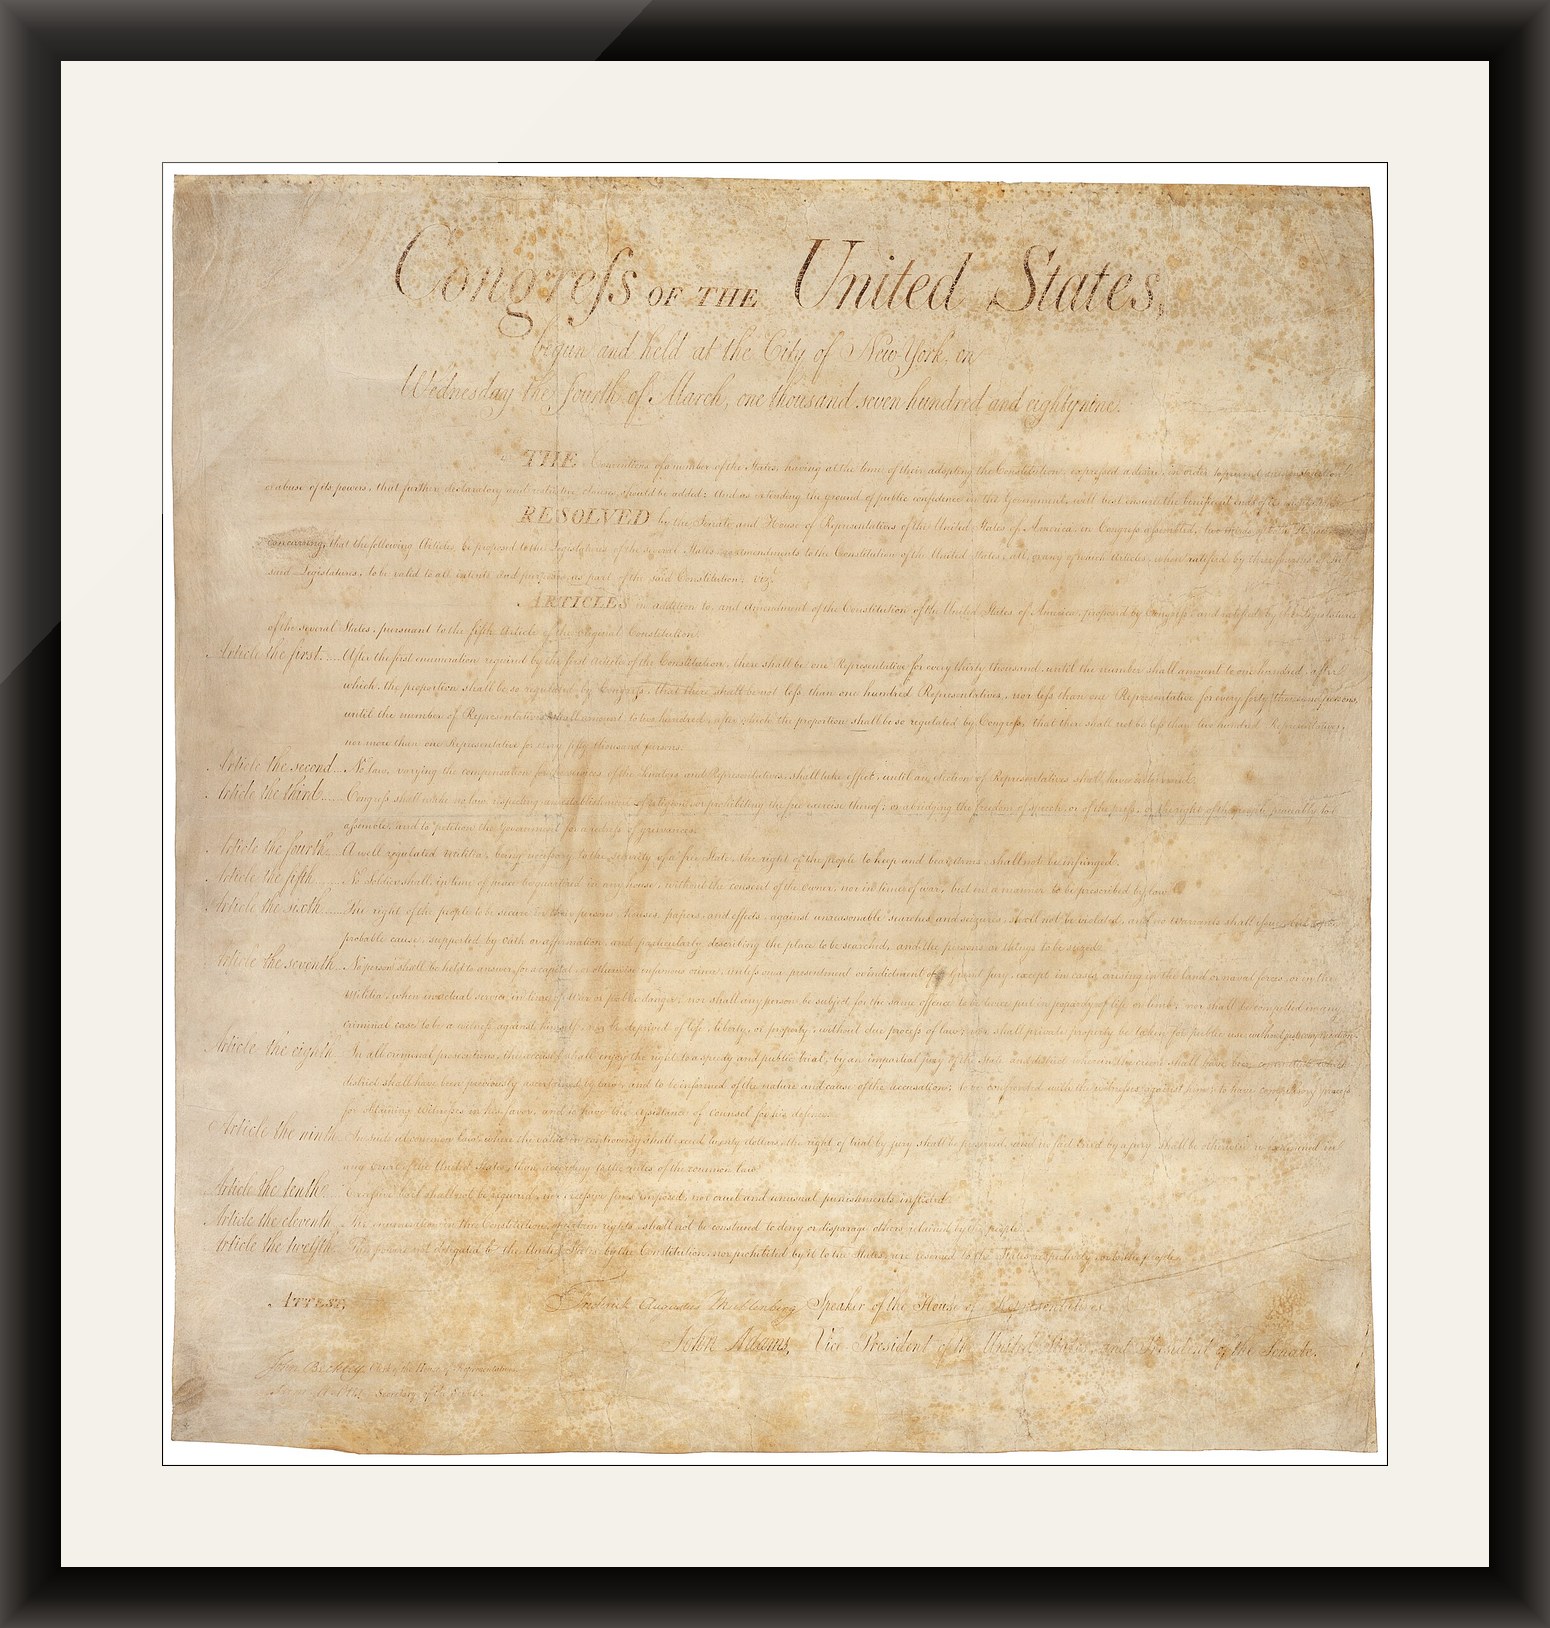 Congreſs OF THE United States,
begun and held at the City of New-York, on
Wednesday the fourth of March, one thousand seven hundred and eighty nine.
THE Conventions of a number of the States, having at the time of their adopting the Constitution, expressed a desire, in order to prevent misconstruction
or abuse of its powers, that further declaratory and restrictive clauses should be added: And as extending the ground of public confidence in the Government, will best ensure the beneficent ends of its
RESOLVED by the Senate and House of Representatives of the United States of America, in Congreſs aſsembled, two thirds of both Houses
concurring, that the following Articles be proposed to the Legislatures of the several States, as amendments to the Constitution of the United States, all, or any of which Articles, when ratified by three fourths of the
said Legislatures, to be valid to all intents and purposes, as part of the said Constitution; viz.
ARTICLES in addition to, and amendment of the Constitution of the United States of America, proposed by Congreſs, and ratified by the Legislatures
of the several States, pursuant to the fifth Article of the original Constitution.
Article the first..... After the first enumeration required by the first Article of the Constitution, there shall be one Representative for every thirty thousand, until the number shall amount to one hundred, after
which, the proportion shall be so regulated by Congreſs, that there shall be not leſs than one hundred Representatives, nor leſs than one Representative for every forty thousand persons,
until the number of Representatives shall amount to two hundred, after which the proportion shall be so regulated by Congreſs, that there shall not be leſs than two hundred Representatives,
nor more than one Representative for every fifty thousand persons.
Article the second... No law, varying the compensation for the services of the Senators and Representatives, shall take effect, until an election of Representatives shall have intervened.
Article the third...... Congreſs shall make no law respecting an establishment of religion, or prohibiting the free exercise thereof; or abridging the freedom of speech, or of the press; or the right of the people peaceably to
aſsemble, and to petition the Government for a redress of grievances.
Article the fourth.... A well regulated Militia, being necessary to the security of a free State, the right of the people to keep and bear Arms, shall not be infringed.
Article the fifth ....... No Soldier shall, in time of peace be quartered in any house, without the consent of the Owner, nor in time of war, but in a manner to be prescribed by law.
Article the sixth...... The right of the people to be secure in their persons, houses, papers, and effects, against unreasonable searches and seizures, shall not be violated, and no Warrants shall issue, but upon
probable cause, supported by Oath or affirmation, and particularly describing the place to be searched, and the persons or things to be seized.
Article the seventh... No person shall be held to answer for a capital, or otherwise infamous crime, unleſs on a presentment or indictment of a Grand Jury, except in cases arising in the land or naval forces, or in the
Militia, when in actual service in time of War or public danger; nor shall any person be subject for the same offence to be twice put in jeopardy of life or limb; nor shall be compelled in any
criminal case to be a witness against himself, nor be deprived of life, liberty, or property, without due proceſs of law; nor shall private property be taken for public use, without just compensation.
Article the eighth In all criminal prosecutions, the accused shall enjoy the right to a speedy and public trial, by an impartial jury of the State and district wherein the crime shall have been committed, which
district shall have been previously ascertained by law, and to be informed of the nature and cause of the accusation; to be confronted with the witneſses against him; to have compulsory proceſs
for obtaining witneſses in his favor, and to have the aſsistance of Counsel for his defence.
Article the ninth In suits at common law, where the value in controversy shall exceed twenty dollars, the right of trial by jury shall be preserved, and no fact tried by a jury, shall be otherwise re-examined in
any Court of the United States, than according to the rules of the common law.
Article the tenth Excessive bail shall not be required, nor excessive fines imposed, nor cruel and unusual punishments inflicted.
Article the eleventh The enumeration in the Constitution, of certain rights, shall not be construed to deny or disparage others retained by the people.
Article the twelfth The powers not delegated to the United States by the Constitution, nor prohibited by it to the States, are reserved to the States respectively, or to the people.
ATTEST,
Frederick Augustus Muhlenberg Speaker of the House of Representatives
John Adams, Vice President of the United States, and President of the Senate.
John Beckley, Clerk of the House of Representatives
Secretary of the Senate